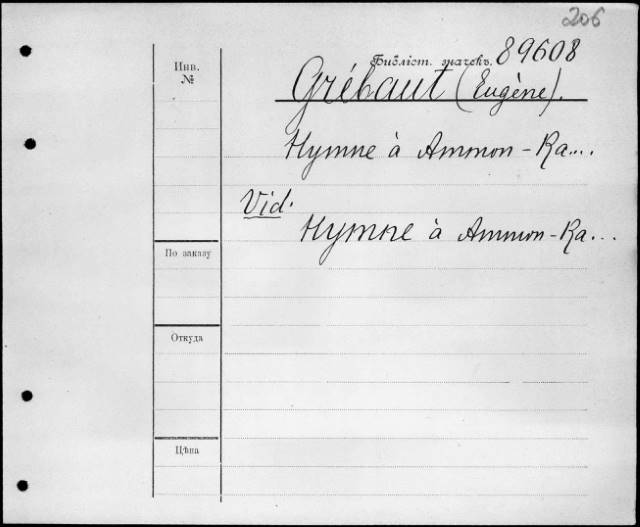 206
Библіот. значекъ. 89608
Инв.
№
Grébaut (Eugène).
Hymne à Ammon-Ra...
Vid.
Hymne à Ammon-Ra...
По заказу
Откуда
Цѣна